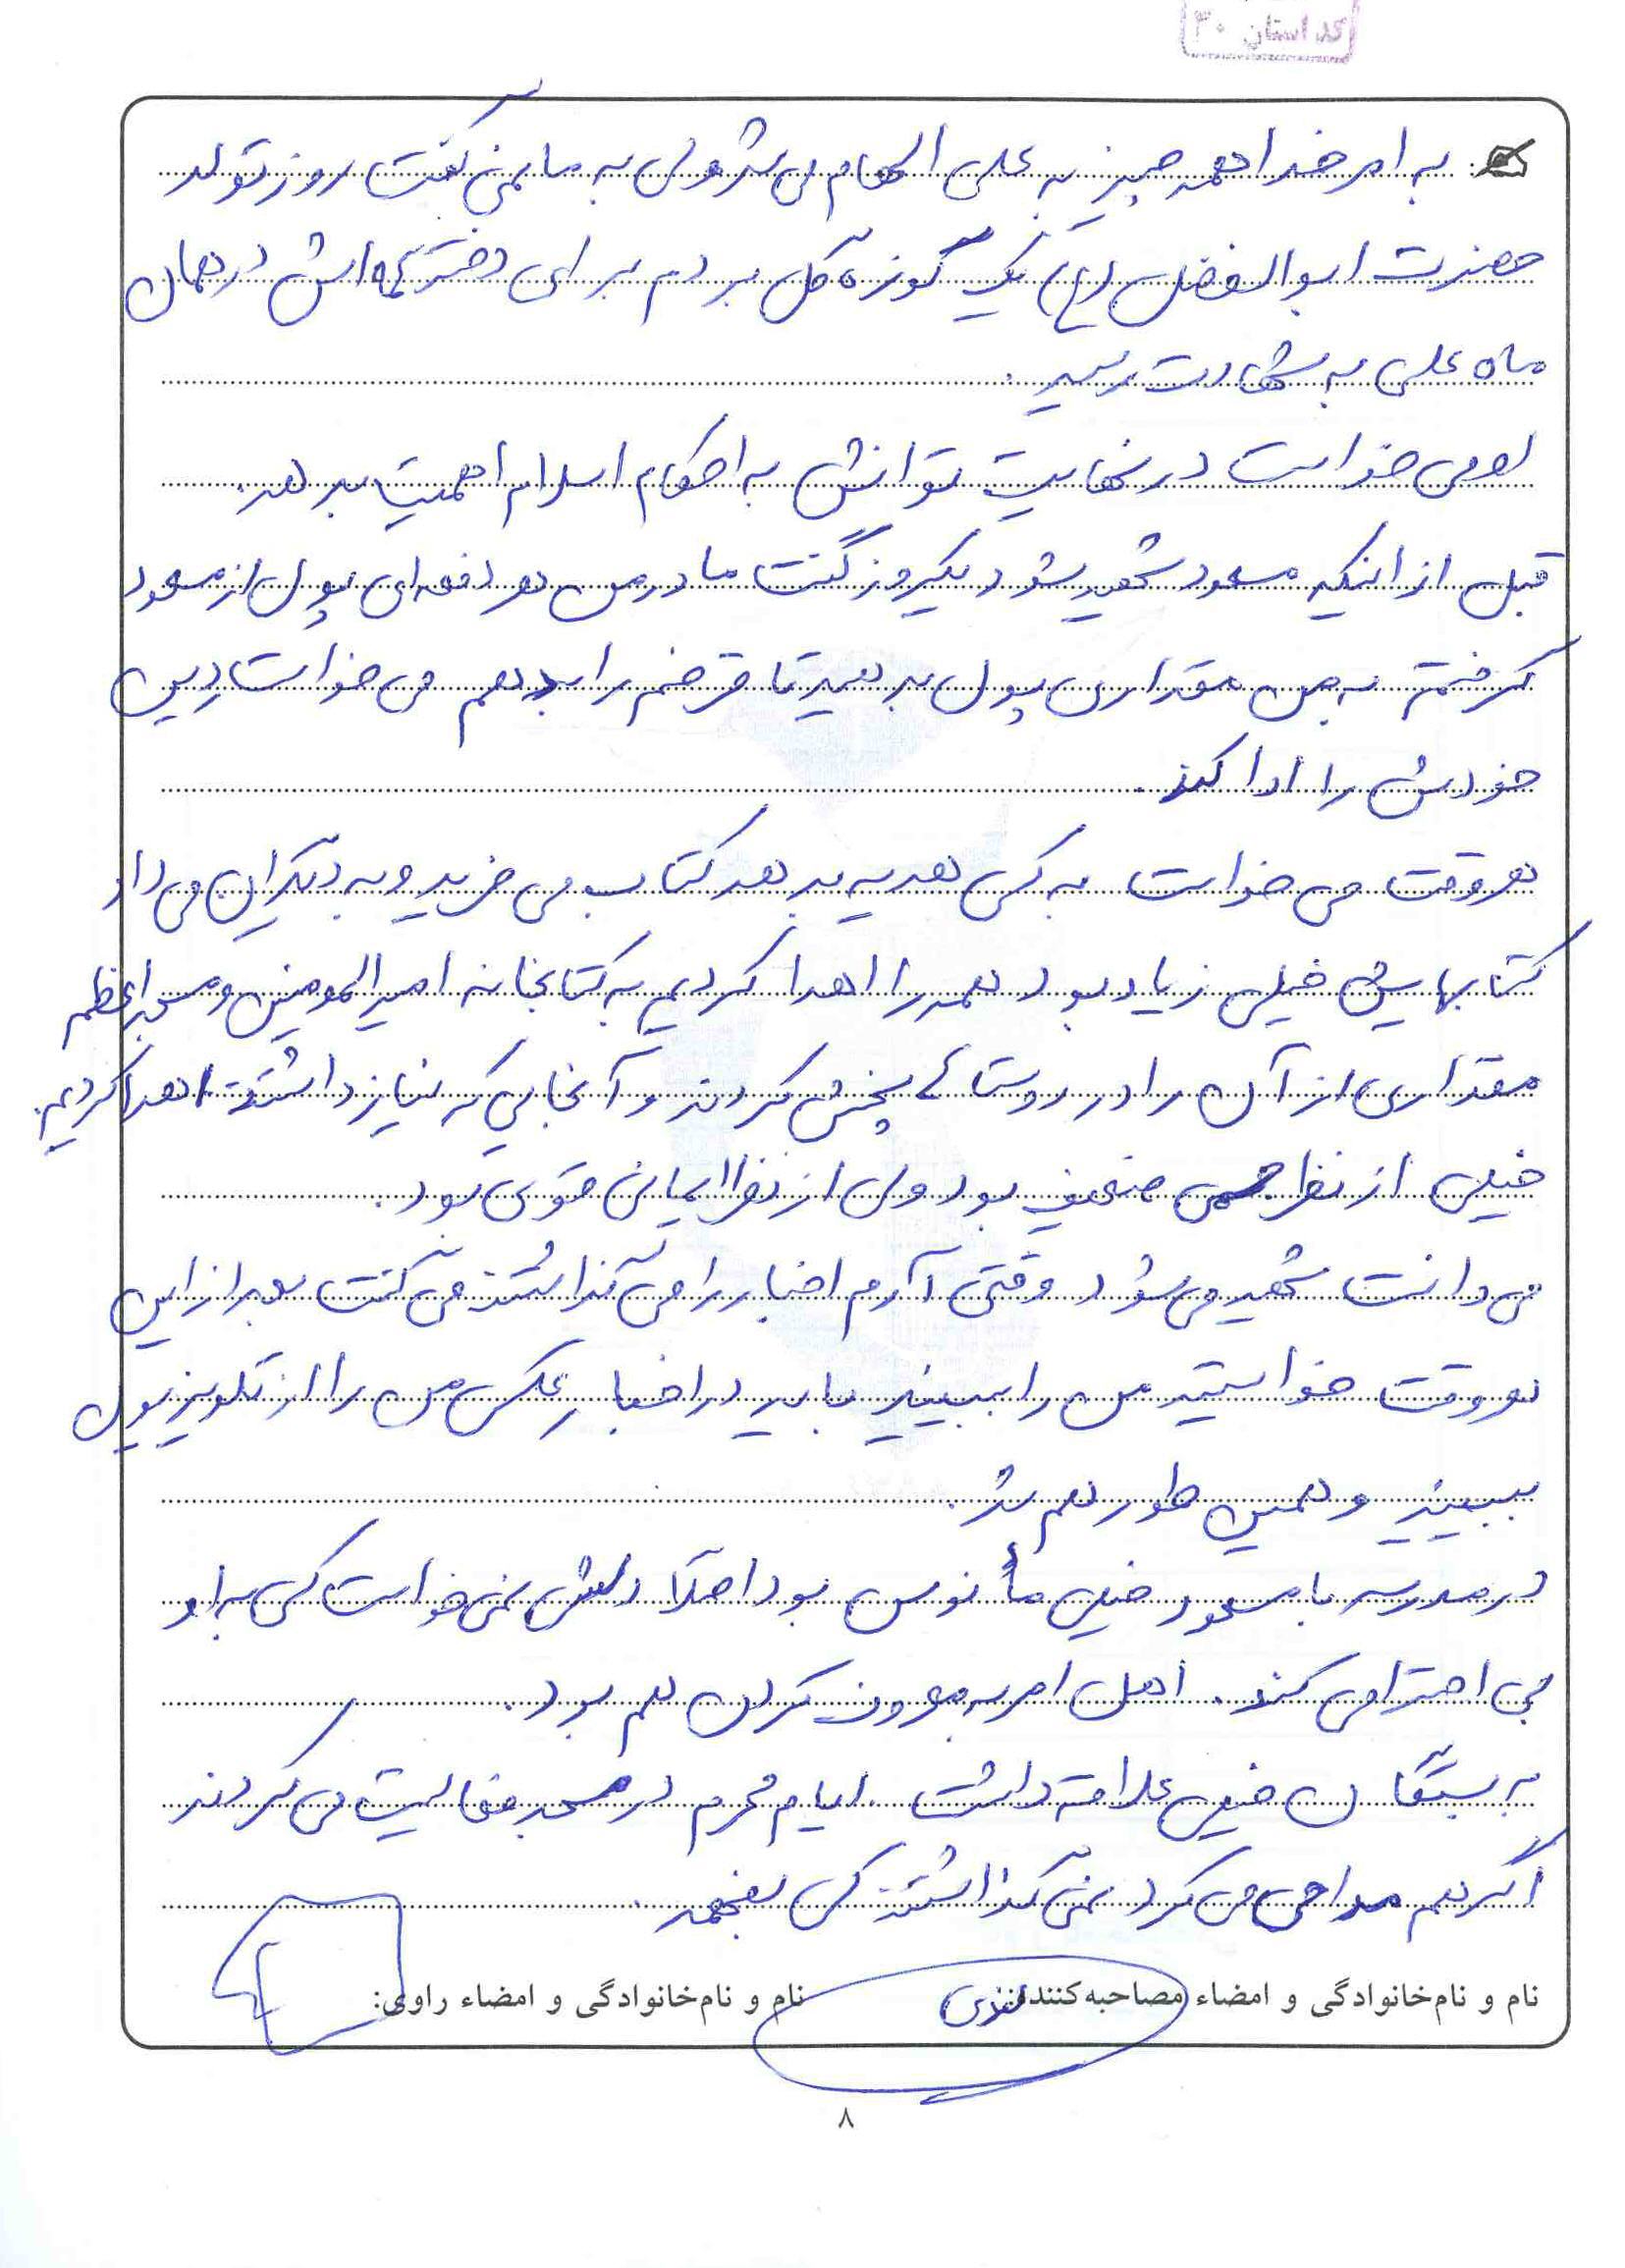 کد استان ۳۰
به امر خدا همه چیز به علی الهام می شد ولی به ما نمی گفت روز تولد
حضرت ابوالفضل (ع) یک کوزه گل بردم برای دختر عمه اش در همان
ماه علی به شهادت رسید.
او می خواست در نهایت توانش به احکام اسلام اهمیت بدهد.
قبل از اینکه مسعود شهید شود یکروز گفت مادر من هر دفعه ای پول از مسعود
گرفتم به من مقداری پول بدهید تا قرضم را بدهم می خواست دین
خودش را ادا کند.
هر وقت می خواست به کسی هدیه بدهد کتاب می خرید و به دیگران می داد
کتابهایش خیلی زیاد بود همه را اهدا کردیم به کتابخانه امیرالمومنین و مسجد اعظم
مقداری از آن را در روستا پخش کردند و آنجایی که نیاز داشتند اهدا کردیم.
خیلی از نظر جسمی ضعیف بود ولی از نظر ایمانی قوی بود.
می دانست شهید می شود وقتی آرم اخبار را می گذاشتند می گفت بعد از این
هر وقت خواستید من را ببینید باید در اخبار عکس من را از تلویزیون
ببینید و همین طور هم شد.
در مدرسه با مسعود خیلی مأنوس بود اصلاً دلش نمی خواست کسی به او
بی احترامی کند. اهل امر به معروف کردن هم بود.
به بستگان خیلی علاقه داشت. ایام محرم در مسجد فعالیت می کردند
اگر هم مداحی می کرد نمی گذاشتند کسی بفهمد.
نام و نام‌خانوادگی و امضاء مصاحبه‌کننده: نام و نام‌خانوادگی و امضاء راوی:
۸